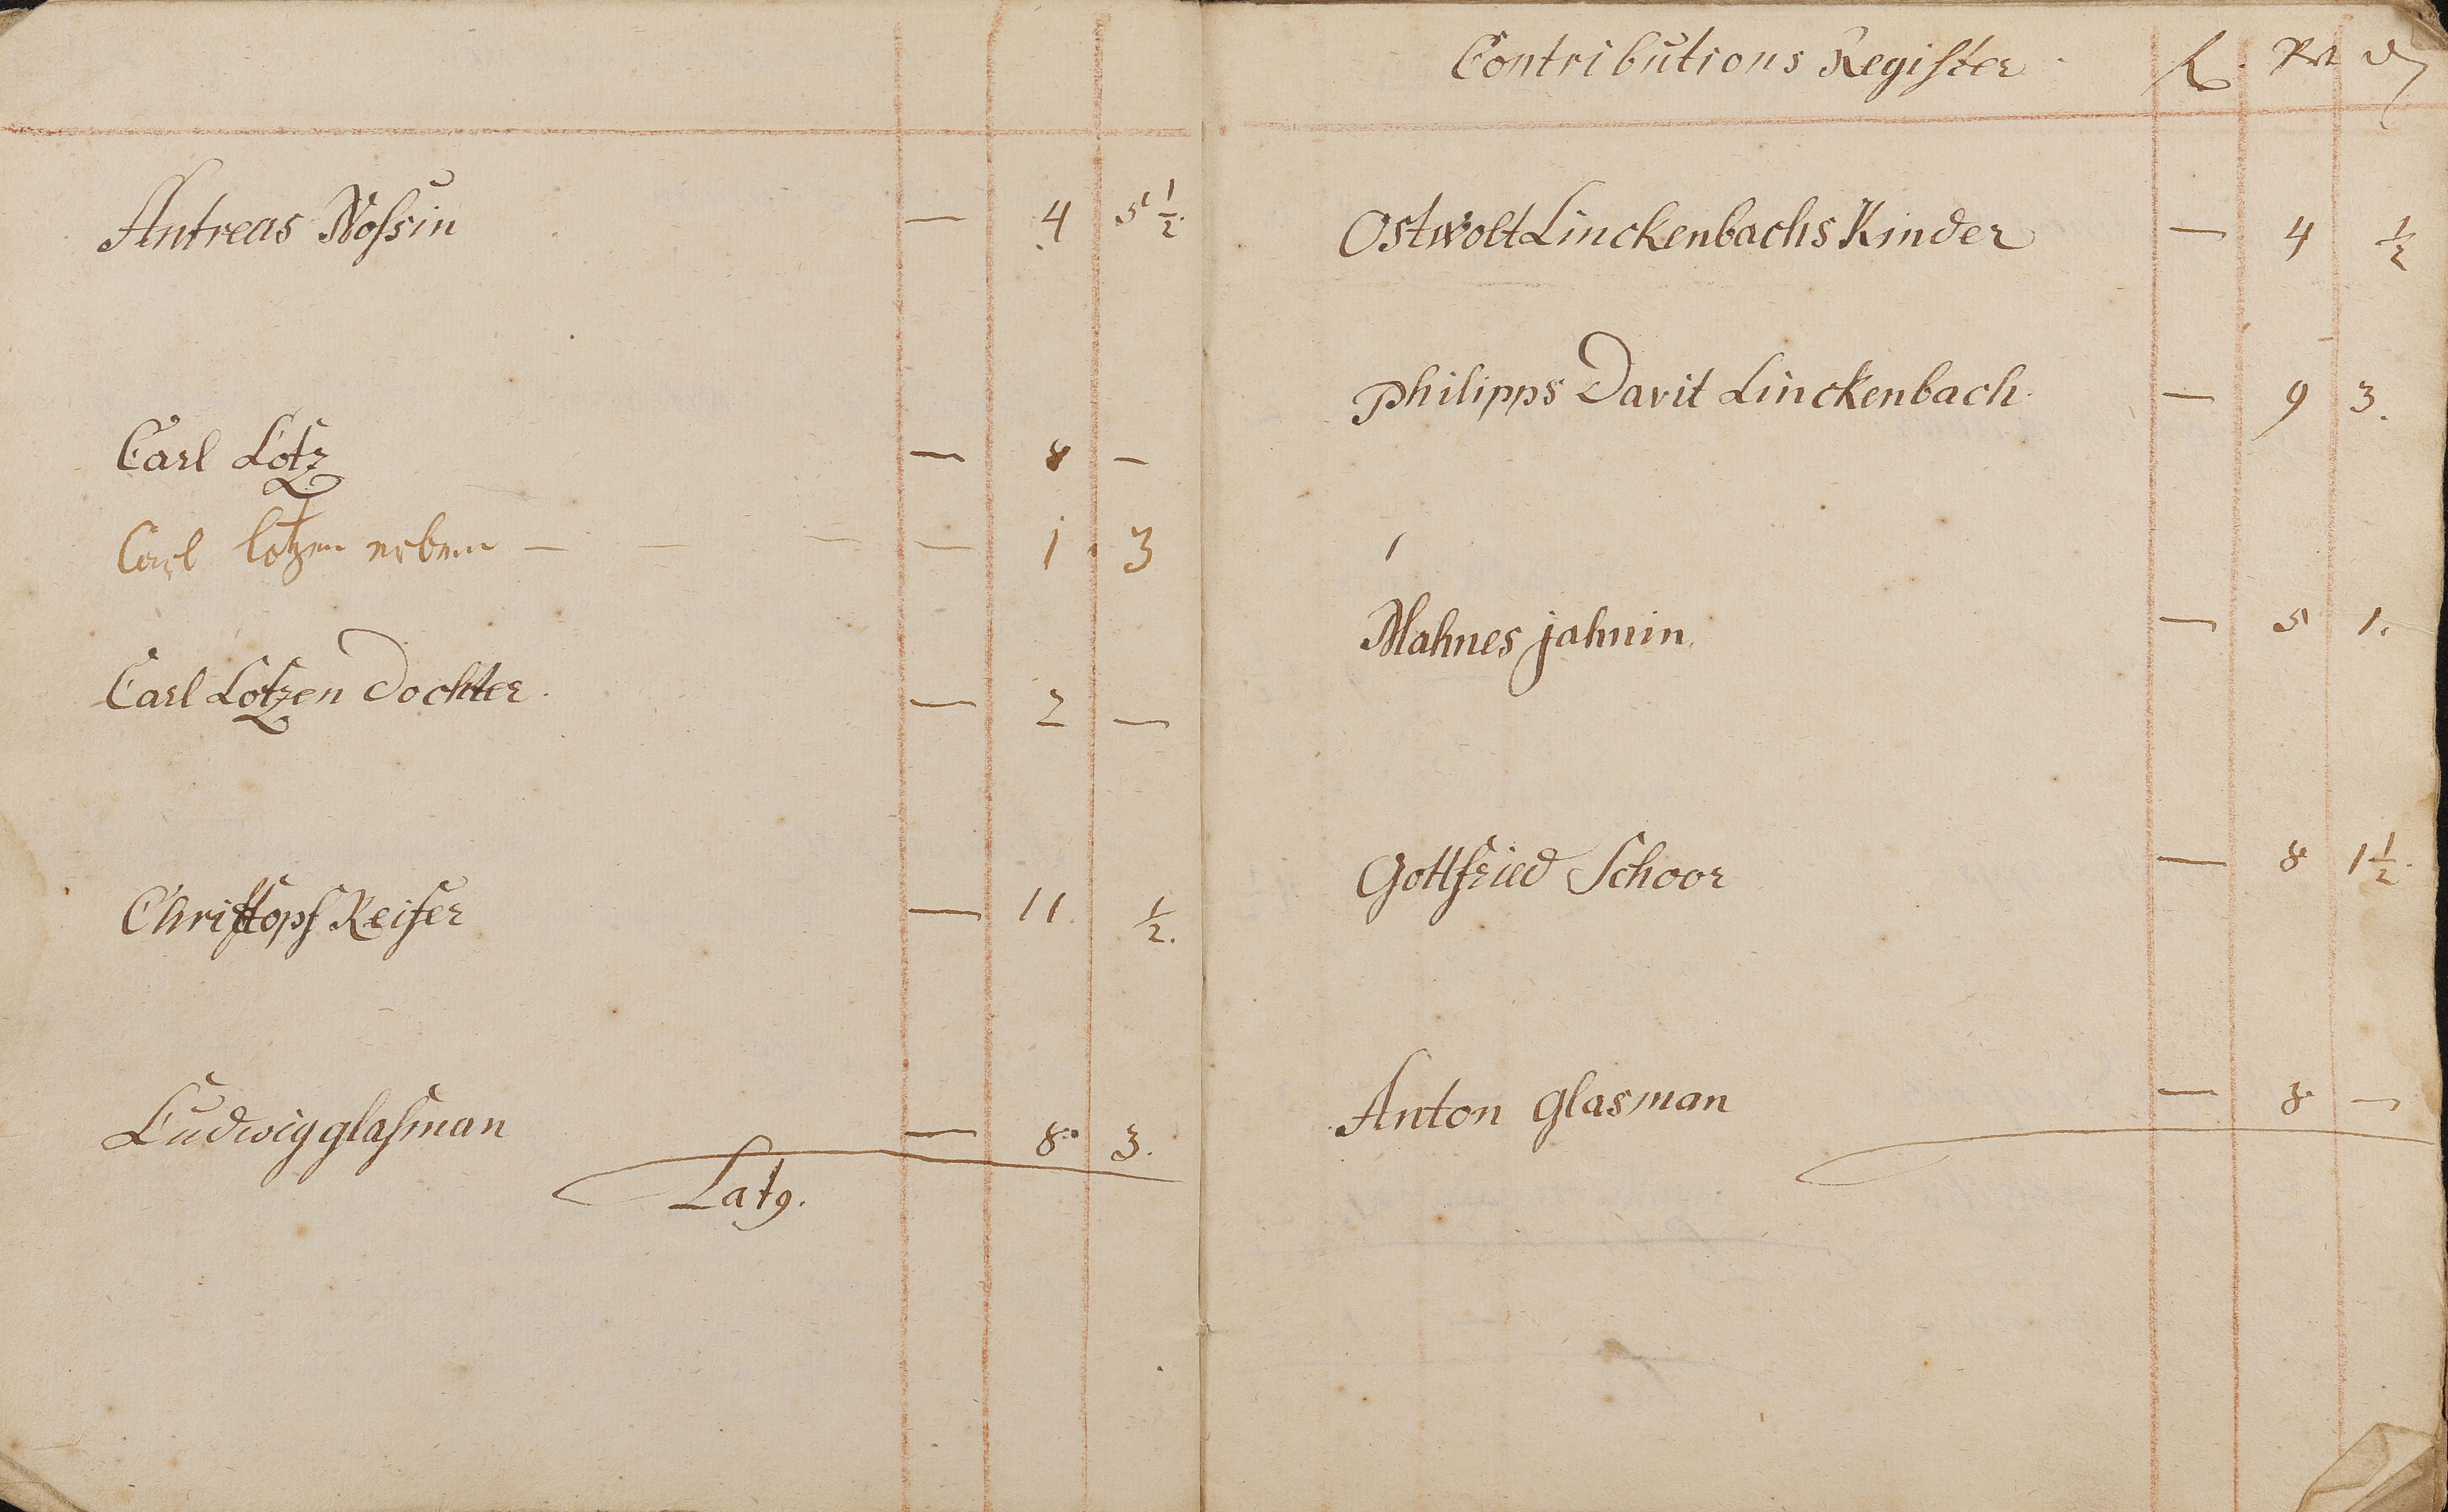 Antreas Noſsin — 4 5 ½.
Carl Lotz — 8 —
Carl lotzen erben — — — — 1. 3
Carl Lotzen Dochter. — 2 —
Chriſtoph Reiſer — 11 ½.
Ludwig glaſman — 8. 3.
Lat9.
Contributions Regiſter.
Ostwolt Linckenbachs Kinder — 4 ½
Philipps Davit Linckenbach. — 9 3.
Mahnes jahnin. — 5 1.
Gottfried Schoor — 8 1½.
Anton glasman — 8 —